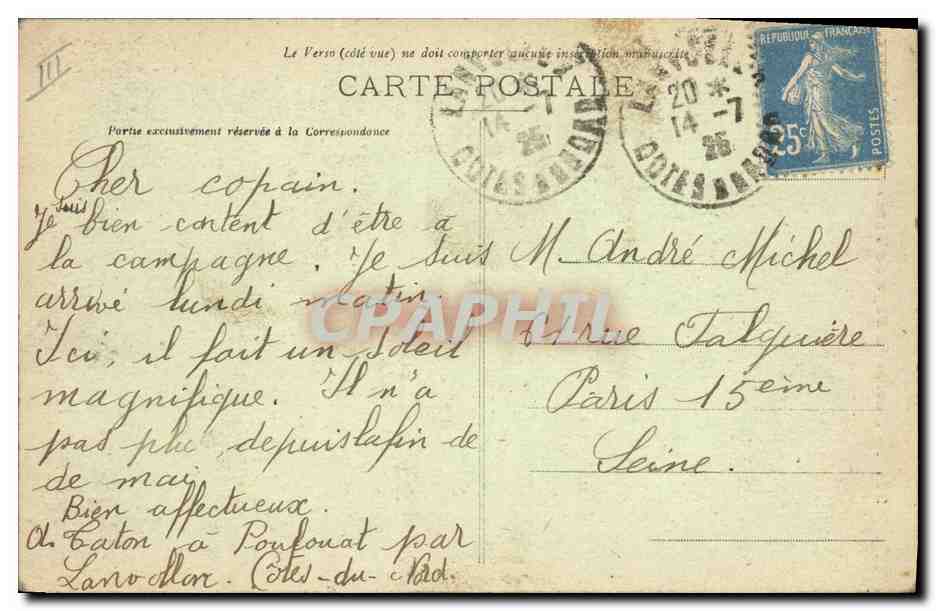 III
Le Verso (côté vue) ne doit comporter aucune inscription manuscrite
CARTE POSTALE
Partie exclusivement réservée à la Correspondance
RÉPUBLIQUE FRANÇAISE
25c
POSTES
20 *
14 -7
25
COTES DU NORD
20 *
14 -7
25
COTES DU NORD
Cher copain.
Je suis bien content d'être à
la campagne. Je suis
arrivé lundi matin.
Ici, il fait un soleil
magnifique. Il n'a
pas plu depuis la fin de
de mai
Bien affectueux.
A. Caton à Poulouat par
Lanvollon. Côtes-du-Nord.
M. André Michel
rue Falguière
Paris 15ème
Seine.
CPAPHIL